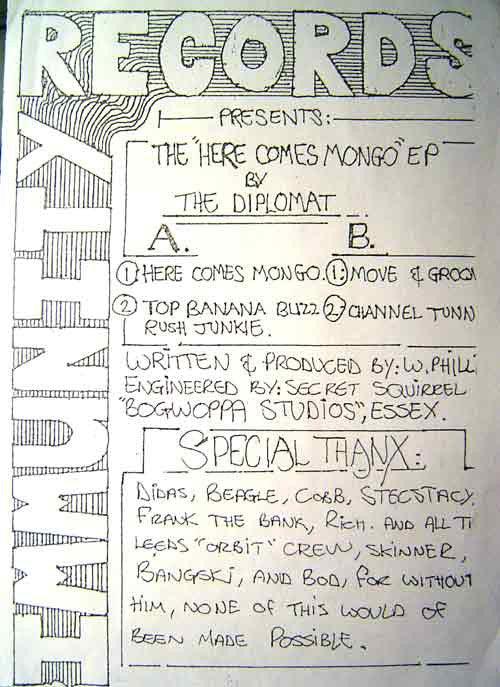 RECORDS
IMMUNITY
PRESENTS:
THE "HERE COMES MONGO" EP
BY
THE DIPLOMAT
A. B.
1 HERE COMES MONGO. 1: MOVE & GROO
2 TOP BANANA BUZZ 2: CHANNEL TUNN
RUSH JUNKIE.
WRITTEN & PRODUCED BY: W. PHILLI
ENGINEERED BY: SECRET SQUIRREL
"BOGWOPPA STUDIOS", ESSEX.
SPECIAL THANX:
DIDAS, BEAGLE, COBB, STECSTACY.
FRANK THE BANK, RICH. AND ALL T
LEEDS "ORBIT" CREW, SKINNER,
BANGSKI, AND BOD, FOR WITHOUT
HIM, NONE OF THIS WOULD OF
BEEN MADE POSSIBLE.